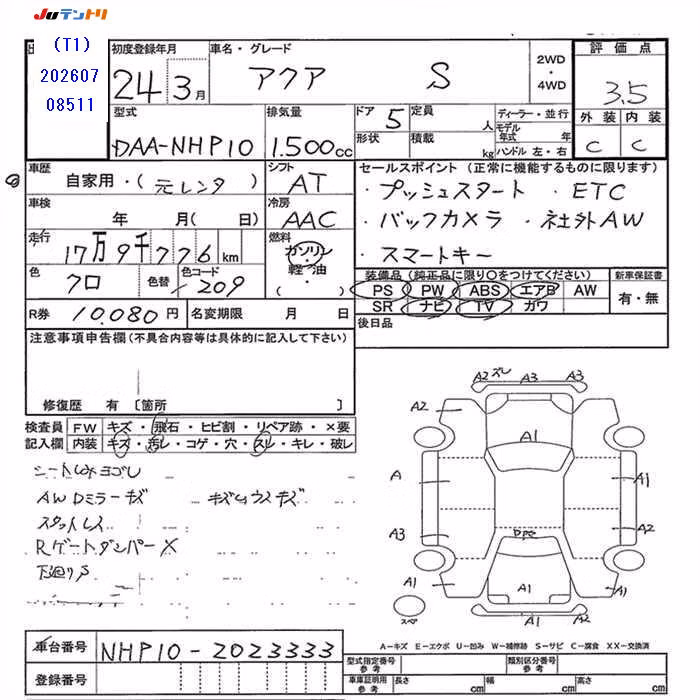 JUテントリ
(T1)
202607
08511
初度登録年月
24年3月
車名・グレード
アクア S
2WD
・
4WD
評価点
3.5
外装 内装
C C
型式
DAA-NHP10
排気量
1.500cc
ドア 5
形状
定員 人
積載 kg
ディーラー・並行
モデル年式 年
ハンドル 左・右
車歴
自家用・(元レンタ)
シフト
AT
車検
年 月( 日)
冷房
AAC
走行
17万9千776km
燃料
ガソリン
・
軽油
( )
色
クロ
色替
色コード
209
R券 10.080円
名変期限 月 日
セールスポイント (正常に機能するものに限ります)
・プッシュスタート ・ETC
・バックカメラ ・社外AW
・スマートキー
装備品(純正品に限り○をつけてください)
PS PW ABS エアB AW
SR ナビ TV カワ
新車保証書
有・無
後日品
注意事項申告欄(不具合内容等は具体的に記入して下さい)
修復歴 有 〔箇所 〕
検査員
記入欄
FW キズ・飛石・ヒビ割・リペア跡・×要
内装 キズ・汚レ・コゲ・穴・スレ・キレ・破レ
シートしみヨゴレ
AWDミラーキズ
スタットレス
Rゲートダンパー×
下廻りS
A2 ズレ A3 A3
A2
A1
A
A1
A3
A2
A1
A1
A1
A2 A1
スペア
A-キズ E-エクボ U-凹み W-補修跡 S-サビ C-腐食 XX-交換済
車台番号 NHP10-2023333
登録番号
型式指定番号
参考
類別区分番号
参考
車庫証明用
参考
長さ cm 幅 cm 高さ cm